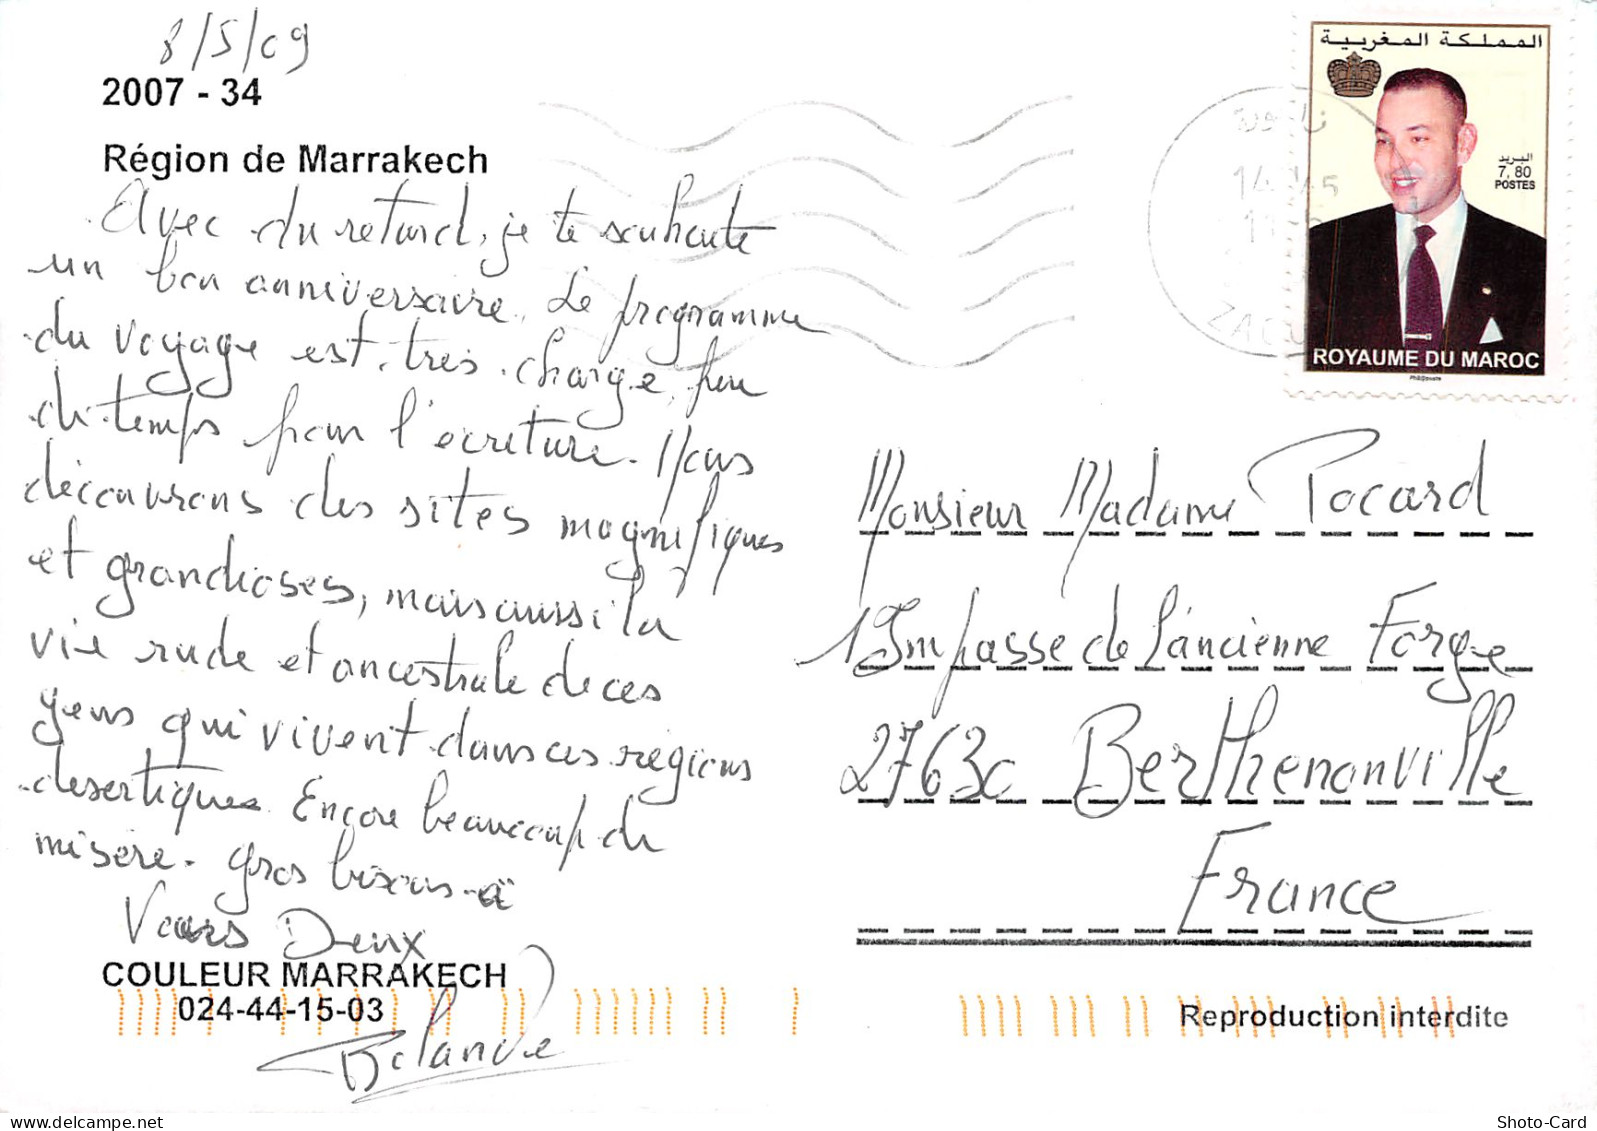 8/5/09
2007 - 34
Région de Marrakech
Avec du retard, je te souhaite
un bon anniversaire. Le programme
du voyage est très chargé, peu
de temps pour l'écriture. Nous
découvrons des sites magnifiques
et grandioses, mais aussi la
vie rude et ancestrale de ces
gens qui vivent dans ces régions
désertiques. Encore beaucoup de
misère. Gros bisous à
Vous Deux
COULEUR MARRAKECH
024-44-15-03
المملكة المغربية
البريد
7,80
POSTES
ROYAUME DU MAROC
Monsieur Madame Pocard
1 Impasse de l'ancienne Forge
27630 Berthenonville
France
Reproduction interdite
Shoto-Card